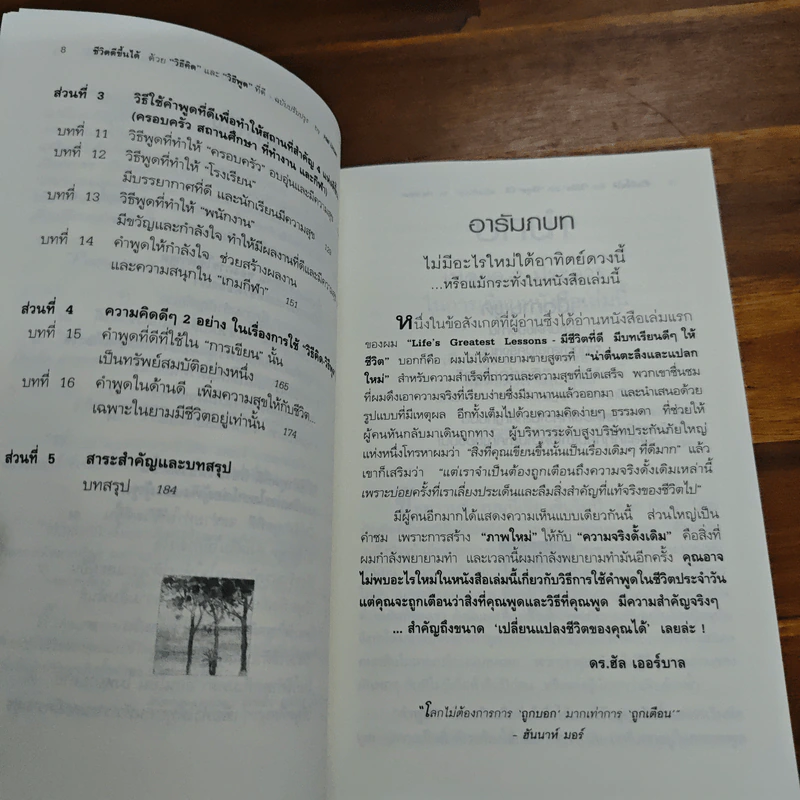 8 ชีวิตดีขึ้นได้ ด้วย "วิธีคิด" และ "วิธีพูด" ที่ดี - ฉบับปรับปรุง
ส่วนที่ 3 วิธีใช้คำพูดที่ดีเพื่อทำให้สถานที่สำคัญ 4
(ครอบครัว สถานศึกษา ที่ทำงาน และกีฬา)
บทที่ 11 วิธีพูดที่ทำให้ "ครอบครัว" อบอุ่นและมีความสุข
บทที่ 12 วิธีพูดที่ทำให้ "โรงเรียน"
มีบรรยากาศที่ดี และนักเรียนมีความสุข
บทที่ 13 วิธีพูดที่ทำให้ "พนักงาน"
มีขวัญและกำลังใจ ทำให้มีผลงานที่ดีและมีความ
บทที่ 14 คำพูดให้กำลังใจ ช่วยสร้างผลงาน
และความสนุกใน "เกมกีฬา" 151
ส่วนที่ 4 ความคิดดีๆ 2 อย่าง ในเรื่องการใช้ "วิธีคิด-วิธีพูด"
บทที่ 15 คำพูดที่ดีที่ใช้ใน "การเขียน" นั้น
เป็นทรัพย์สมบัติอย่างหนึ่ง 165
บทที่ 16 คำพูดในด้านดี เพิ่มความสุขให้กับชีวิต...
เฉพาะในยามมีชีวิตอยู่เท่านั้น 174
ส่วนที่ 5 สาระสำคัญและบทสรุป
บทสรุป 184
อารัมภบท
ไม่มีอะไรใหม่ใต้อาทิตย์ดวงนี้
...หรือแม้กระทั่งในหนังสือเล่มนี้
หนึ่งในข้อสังเกตที่ผู้อ่านซึ่งได้อ่านหนังสือเล่มแรก
ของผม "Life's Greatest Lessons - มีชีวิตที่ดี มีบทเรียนดีๆ ให้
ชีวิต" บอกก็คือ ผมไม่ได้พยายามขายสูตรที่ "น่าตื่นตะลึงและแปลก
ใหม่" สำหรับความสำเร็จที่ถาวรและความสุขที่เบ็ดเสร็จ พวกเขาชื่นชม
ที่ผมดึงเอาความจริงที่เรียบง่ายซึ่งมีมานานแล้วออกมา และนำเสนอด้วย
รูปแบบที่มีเหตุผล อีกทั้งเต็มไปด้วยความคิดง่ายๆ ธรรมดา ที่ช่วยให้
ผู้คนหันกลับมาเดินถูกทาง ผู้บริหารระดับสูงบริษัทประกันภัยใหญ่
แห่งหนึ่งโทรหาผมว่า "สิ่งที่คุณเขียนขึ้นนั้นเป็นเรื่องเดิมๆ ที่ดีมาก" แล้ว
เขาก็เสริมว่า "แต่เราจำเป็นต้องถูกเตือนถึงความจริงดั้งเดิมเหล่านี้
เพราะบ่อยครั้งที่เราเลี่ยงประเด็นและลืมสิ่งสำคัญที่แท้จริงของชีวิตไป"
มีผู้คนอีกมากได้แสดงความเห็นแบบเดียวกันนี้ ส่วนใหญ่เป็น
คำชม เพราะการสร้าง "ภาพใหม่" ให้กับ "ความจริงดั้งเดิม" คือสิ่งที่
ผมกำลังพยายามทำ และเวลานี้ผมกำลังพยายามทำมันอีกครั้ง คุณอาจ
ไม่พบอะไรใหม่ในหนังสือเล่มนี้เกี่ยวกับวิธีการใช้คำพูดในชีวิตประจำวัน
แต่คุณจะถูกเตือนว่าสิ่งที่คุณพูดและวิธีที่คุณพูด มีความสำคัญจริงๆ
... สำคัญถึงขนาด 'เปลี่ยนแปลงชีวิตของคุณได้' เลยล่ะ !
ดร.ฮัล เออร์บาล
"โลกไม่ต้องการการ 'ถูกบอก' มากเท่าการ 'ถูกเตือน'"
- ฮันนาห์ มอร์